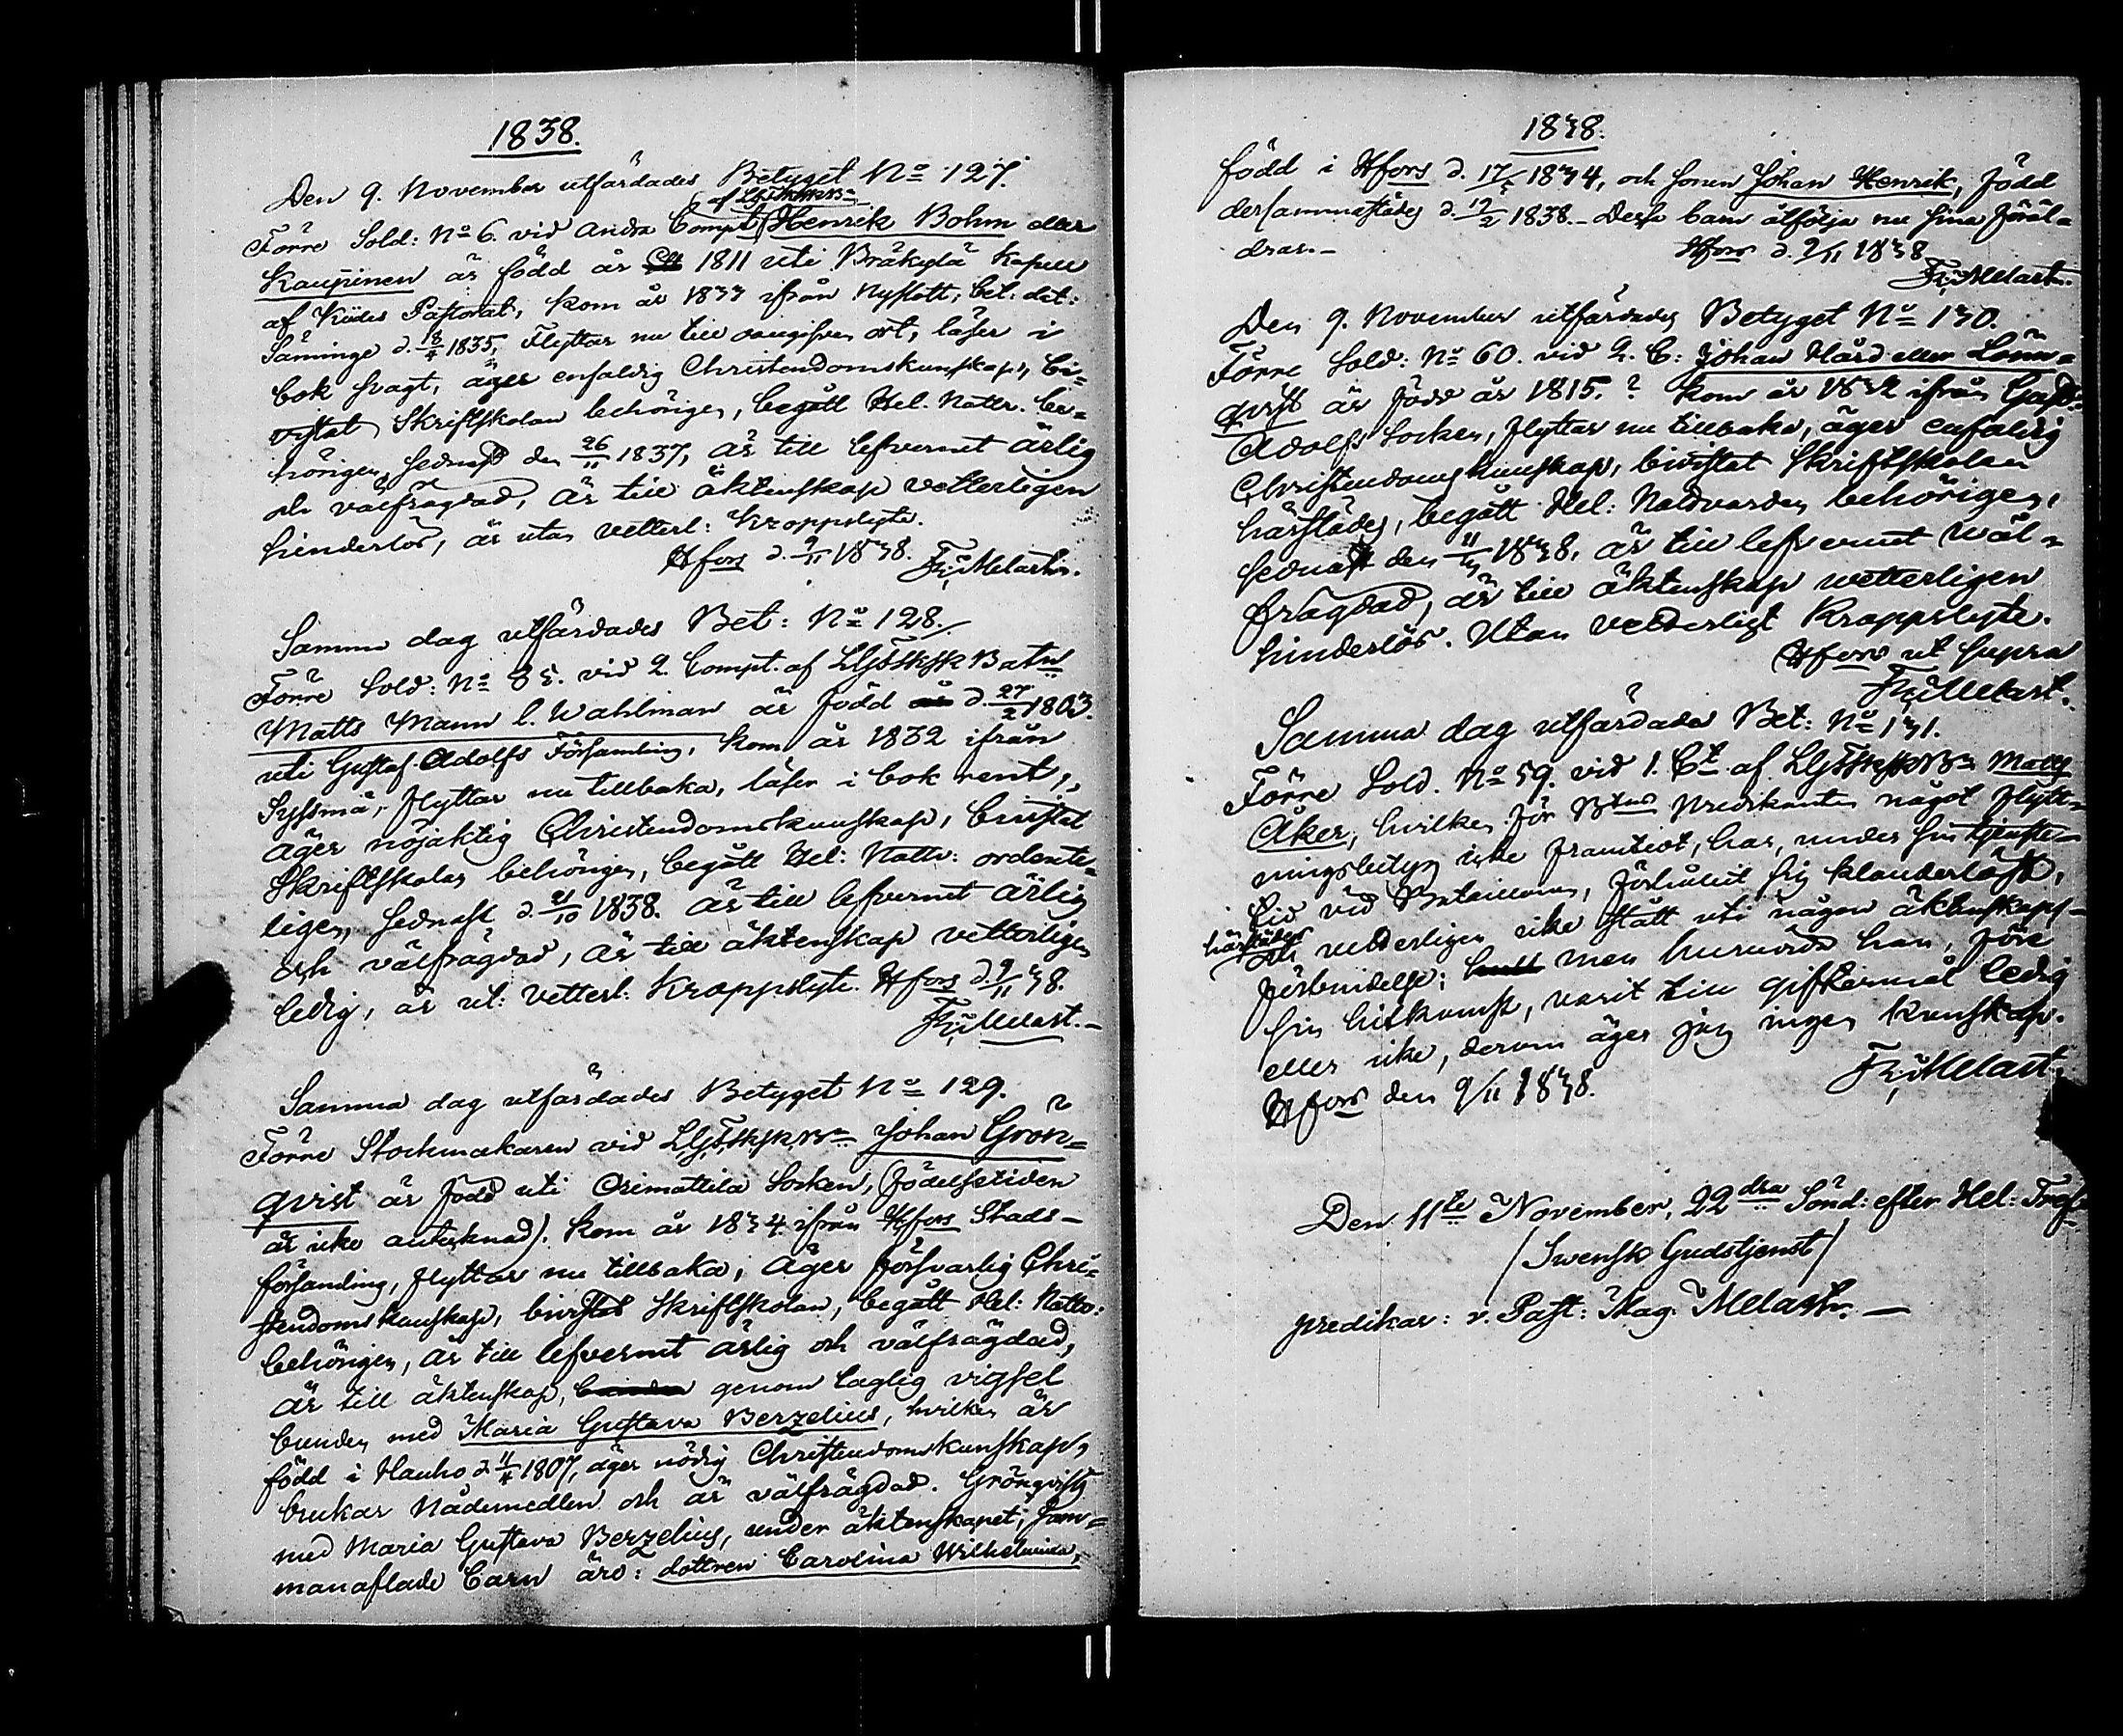 1838.
Den 9. November utfärdades Betyget No 127.
af LGFinskSkBn
Förre Sold: No 6. vid andra Compt Henrik Bohm eller
Kauppinen är född år 1811 uti Bräkylä Kapell
af Kides Pastorat, kom år 1833 ifrån Nyslott, bet: dat:
Säminge d. 18/4 1835, Flyttar nu till ort, läser i
bok svagt, äger enfaldig Christendomskunskap, bi=
vistat Skriftskolan behörigen, begått Hel. Nattv. be=
hörigen, sednast den 26/11 1837, är till lefvernet ärlig
och välfrägdad, är till äktenskap vetterligen
hinderlös, är utan vetterl: Kroppslyte.
Hfors d. 9/11 1838. Fr: Melartin.
Samma dag utfärdades Bet: No 128.
Förre Sold: No 85. vid 2. Compt. af LGFSkSkBatn
Matts Mann l. Wahlman är född d. 27/2 1803.
uti Gustaf Adolfs Församling, kom år 1832 ifrån
Syssmä, flyttar nu tillbaka, läser i bok rent,
äger nöjaktig Christendomskunskap, bivistat
Skriftskolan behörigen, begått Hel: Nattv: ordente=
ligen, sednast d. 21/10 1838. är till lefvernet ärlig
och välfrägdad, är till äktenskap vetterligen
ledig, är ut: vetterl: Kroppslyte. Hfors d. 9/11 38.
Fr: Melart.-
Samma dag utfärdades Betyget No 129.
Förre Stockmakaren vid LGFSkSkBn Johan Grön=
qvist är född uti Orimattila Socken, (födelsetiden
är icke antecknad). kom år 1834 ifrån Hfors Stads-
församling, flyttar nu tillbaka; äger försvarlig Chri=
stendomskunskap, bivistat Skriftskolan, begått Hel: Nattv:
behörigen, är till lefvernet ärlig och välfrägdad,
är till äktenskap, genom laglig vigsel
bunden med Maria Gustava Berzelius, hvilken är
född i Hauho d 11/4 1807, äger nödig Christendomskunskap,
brukar Nådemedlen och är välfrägdad. Grönqvists
med Maria Gustava Berzelius, under äktenskapet, sam=
manaflade barn äro: dottren Carolina Wilhelmina,
1838.
född i Hfors d. 17/5 1834, och sonen Johan Henrik, född
dersammastädes d. 19/2 1838.- Dessa barn åtfölja nu sina föräl=
drar.- Hfors d. 9/11 1838
Fr: Melart.
Den 9. November utfärdades Betyget No 130.
Förre Sold: No 60. vid 2. C: Johan Hård eller Lönn=
qvist är född år 1815.? kom år 1832 ifrån Gust:
Adolfs Socken, flyttar nu tillbaka, äger enfaldig
Christendomskunskap, bivistat Skriftskolan
härstädes, begått Hel: Nattvarden behörigen,
sednast den 11/3 1838. är till lefvernet wäl=
frägdad, är till äktenskap wetterligen
hinderlös. Utan vetterligt Kroppslyte.
Hfors ut supra
Fr: Melart.
Samma dag utfärdades Bet: No 131.
Förre Sold. No 59. vid 1. Ct af LGFSkSkBn Matts
Åker, hvilken för Btns Predikanten något flytt=
ningsbetyg icke framtedt, har, under sin tjenste-
tid vid Bataillonen, förhållit sig klanderlöst,
härstädes
och vetterligen icke stått uti någon äktenskaps-
förbindelse; men huruvida han, före
sin hitkomst, varit till giftermål ledig
eller icke, derom äger jag ingen kunskap.
Hfors den 9/11 1838. Fr: Melart.
Den 11te November, 22dra Sönd: efter Hel: Tref.
/Swensk Gudstjenst/
predikar: v. Past: Mag. Melartin.-